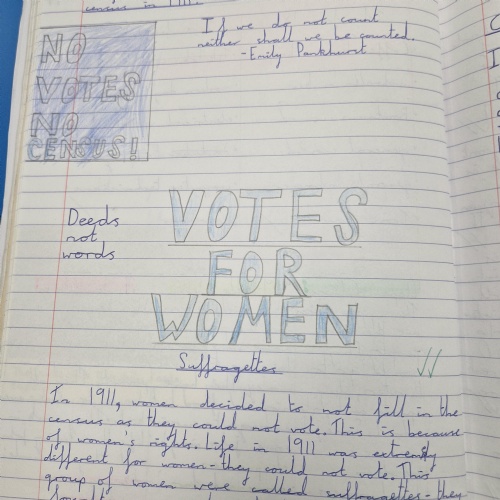 census in 1911.
If we do not count
neither shall we be counted.
-Emily Pankhurst
NO
VOTES
NO
CENSUS!
Deeds
not
words
VOTES
FOR
WOMEN
Suffragettes
In 1911, women decided to not fill in the
census as they could not vote. This is because
of women's rights. Life in 1911 was extremly
different for women - they could not vote. This
group of women were called suffragettes they